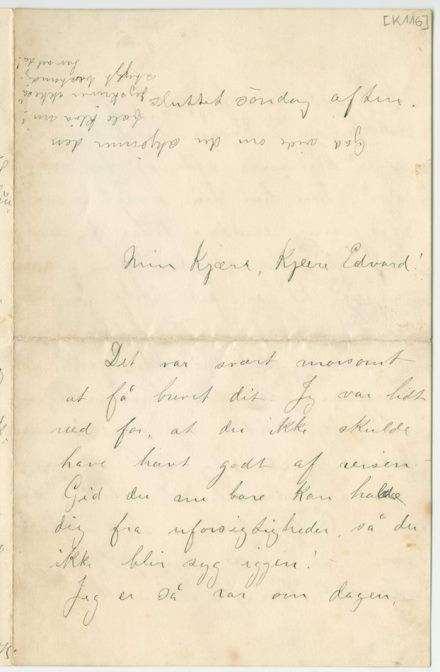 [K116]
sluttet söndag aften.
Gad vide om du skjønner den
Min Kjære, Kjære Edvard!
Det var svært morsomt
at få brevet dit. Jeg var lidt
ræd for, at du ikke skulde
have havt godt af reisen.
Gid du nu bare kan holde
dig fra uforsigtigheder, så du
ikke blir syg iggen!
Jeg er så rar om dagen,